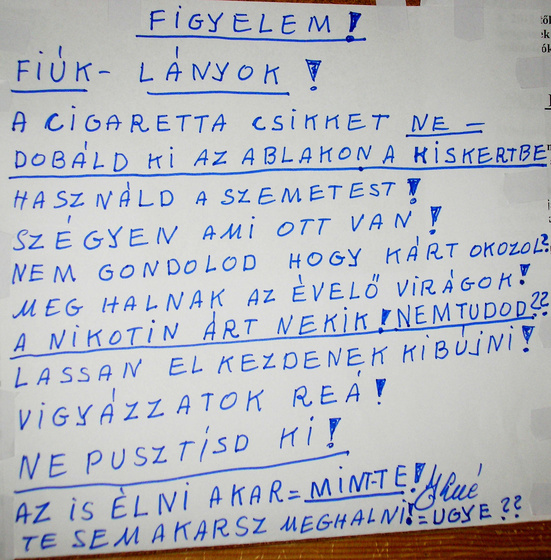 FIGYELEM!
FIÚK- LÁNYOK !
A CIGARETTA CSIKKET NE –
DOBÁLD KI AZ ABLAKON A KISKERTBE
HASZNÁLD A SZEMETEST!
SZÉGYEN AMI OTT VAN!
NEM GONDOLOD HOGY KÁRT OKOZOL?
MEG HALNAK AZ ÉVELŐ VIRÁGOK!
A NIKOTIN ÁRT NEKIK! NEMTUDOD??
LASSAN EL KEZDENEK KIBÚJNI!
VIGYÁZZATOK REÁ!
NE PUSZTÍSD KI!
AZ IS ÉLNI AKAR = MINT-TE!
TE SEM AKARSZ MEGHALNI! = UGYE??